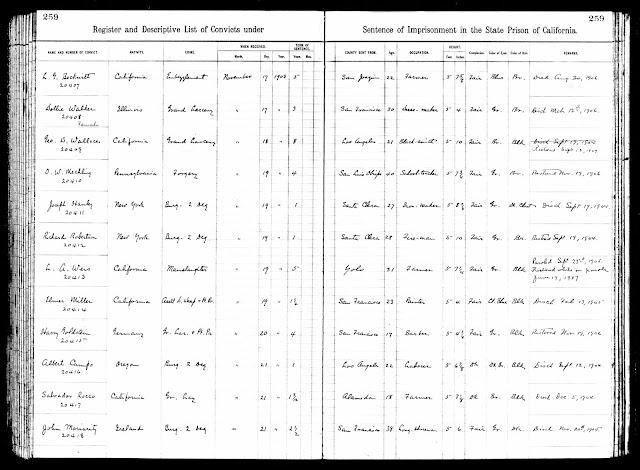 259
259
Register and Descriptive List of Convicts under
Sentence of Imprisonment in the State Prison of California.
NAME AND NUMBER OF CONVICT. NATIVITY. CRIME. WHEN RECEIVED. TERM OF SENTENCE. COUNTY SENT FROM. Age. OCCUPATION. HEIGHT. Complexion Color of Eyes Color of Hair REMARKS.
Month. Day. Year. Yrs. Mos. Feet Inches
California Embezzlement November 17 1903 5 San Joaquin 22 Farmer 5 Fair Blue Br. Disch Aug 20, 1906
20407
Dottie Walker Illinois Grand Larceny " 17 " 3 San Francisco 30 Dress-maker 5 4 Fair Gr. Br. Disch Mch 12th, 1906.
20408
Female
Geo. D. Wallace California Grand Larceny " 18 " 8 Los Angeles 21 Black-smith 5 10 Fair Br. Blk
20409
Pennsylvania Forgery " 19 " 4 San Luis Obispo 40 School-teacher 5 Fair Gr. Br. Restored Nov. 19, 1906
20410
Joseph Hanley New York Burg. 2 Deg " 19 " 1 Santa Clara 27 Iron-worker 5 Fair Gr. Disch Sept 19, 1904
20411
Richard Robertson New York Burg. 2 Deg " 19 " 1 Santa Clara 28 Fire-man 5 10 Fair Gr. Br. Sept 19, 1904.
20412
California Manslaughter " 19 " 5 Yolo 31 Farmer 5 Fair Gr. Blk Paroled Sept 23rd, 1905
20413 Restored while on parole
June 19, 1907
Elmer Miller California " 19 " 1½ San Francisco 23 Painter 5 4 Fair Blk Disch Feb 19, 1905
20414
Harry Goldstein Germany Gr. Lar. & Pr. " 20 " 4 San Francisco 19 Barber 5 Fair Gr. Blk Restored Nov. 1906
20415
Albert Oregon Burg. 2 Deg " 21 " 1 Los Angeles 22 Laborer 5 Dk Blk Disch Sept 1904
20416
Salvador Rocco California Gr. Lar " 21 " Alameda 18 Farmer 5 Dk Br. Blk Disch Dec 5, 1904
20417
John Moriarity Ireland Burg. 2 Deg " 21 " 2½ San Francisco 38 Long-shoreman 5 6 Fair Gr. Disch Nov. 1905
20418